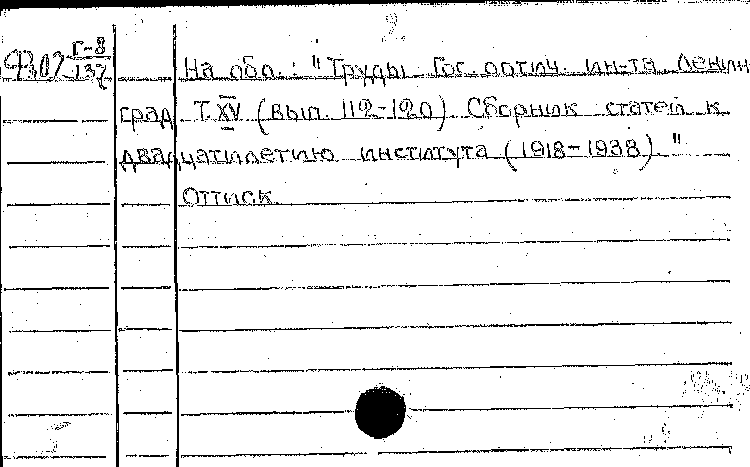 2.
Г-8
137
На обл.: "Труды Гос. оптич. ин-та Ленин
град Т. XV (вып. 112-120). Сборник статей к
двадцатилетию института (1918-1938)."
Оттиск